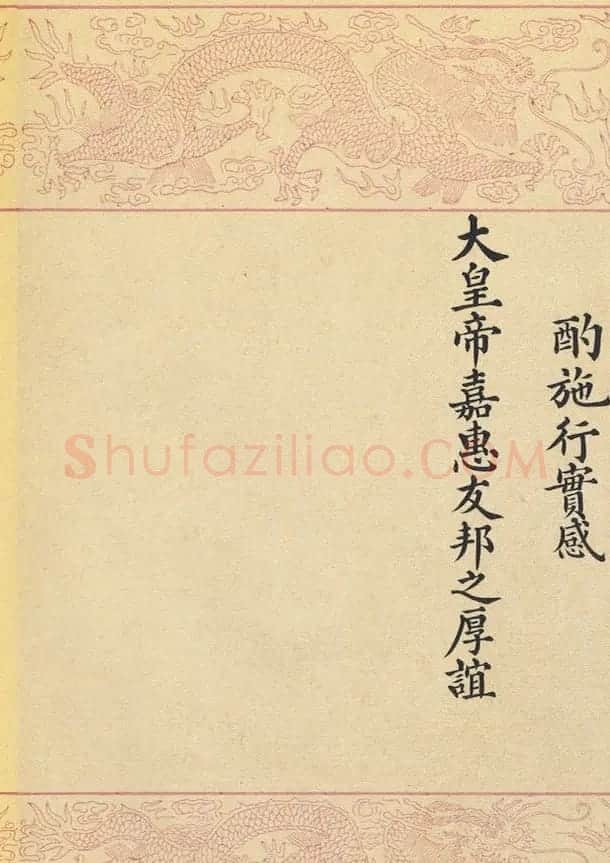 酌施行實感
大皇帝嘉惠友邦之厚誼
Shufaziliao.COM